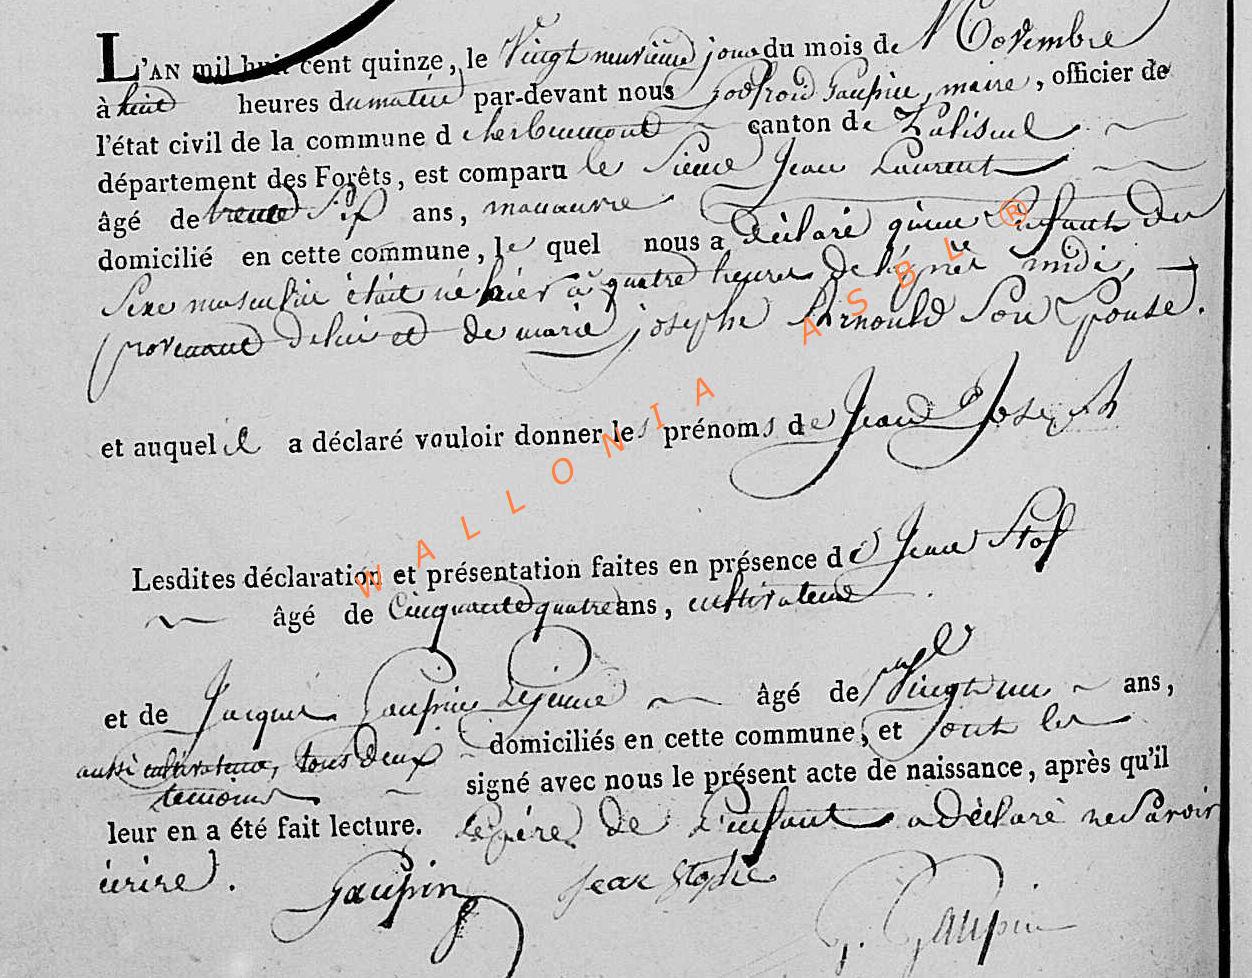 L'AN mil huit cent quinze, le Vingt neuvième jour du mois de Novembre
à huit heures du matin par-devant nous Godfroid Gaupin, maire, officier de
l'état civil de la commune d'herbeumont canton de Paliseul
département des Forêts, est comparu le Sieur Jean Laurent
âgé de trente Six ans, manœuvre
domicilié en cette commune, le quel nous a déclaré qu'un Enfant du
Sexe masculin était né hier à quatre heures de l'après midi,
provenant de lui et de marie josephe Arnould Son Epouse.
et auquel il a déclaré vouloir donner les prénoms de Jean Joseph
Lesdites déclaration et présentation faites en présence de Jean
âgé de Cinquante quatre ans, cultivateur
et de Jacques Gaupin Lejeune âgé de Vingt un ans,
aussi cultivateur, tous deux domiciliés en cette commune, et ont les
temoins signé avec nous le présent acte de naissance, après qu'il
leur en a été fait lecture. Le père de L'enfant a déclaré ne Savoir
écrire.
Gaupin Jean G. Gaupin
WALLONIA ASBL ®